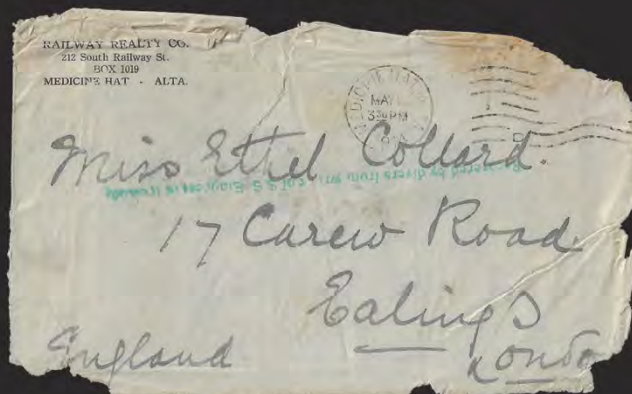 RAILWAY REALTY CO.
212 South Railway St.
BOX 1019
MEDICINE HAT - ALTA.
MEDICINE
MAY
3 PM
Miss Ethel Collard.
Recovered by divers from wreck of S. S. Empress of Ireland
17 Carew Road
Ealing
England